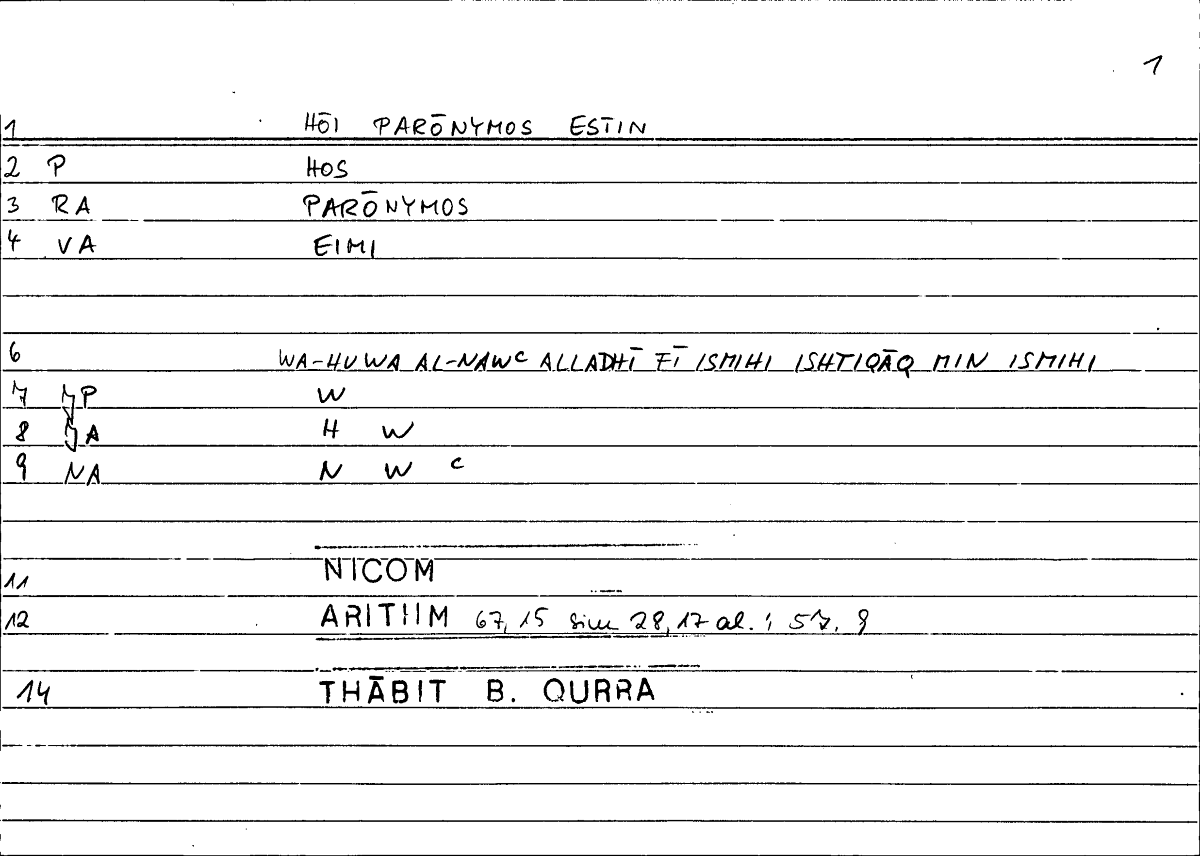 1
1 HŌI PARŌNYMOS ESTIN
2 P HOS
3 RA PARŌNYMOS
4 VA EIMI
6 WA-HUWA AL-NAWᶜ ALLADHĪ FĪ ISMIHI ISHTIQĀQ MIN ISMIHI
7 P W
8 A H W
9 NA N W ᶜ
11 NICOM
12 ARITHM 67,15 sim 28,17 al. ; 57, 9
14 THĀBIT B. QURRA